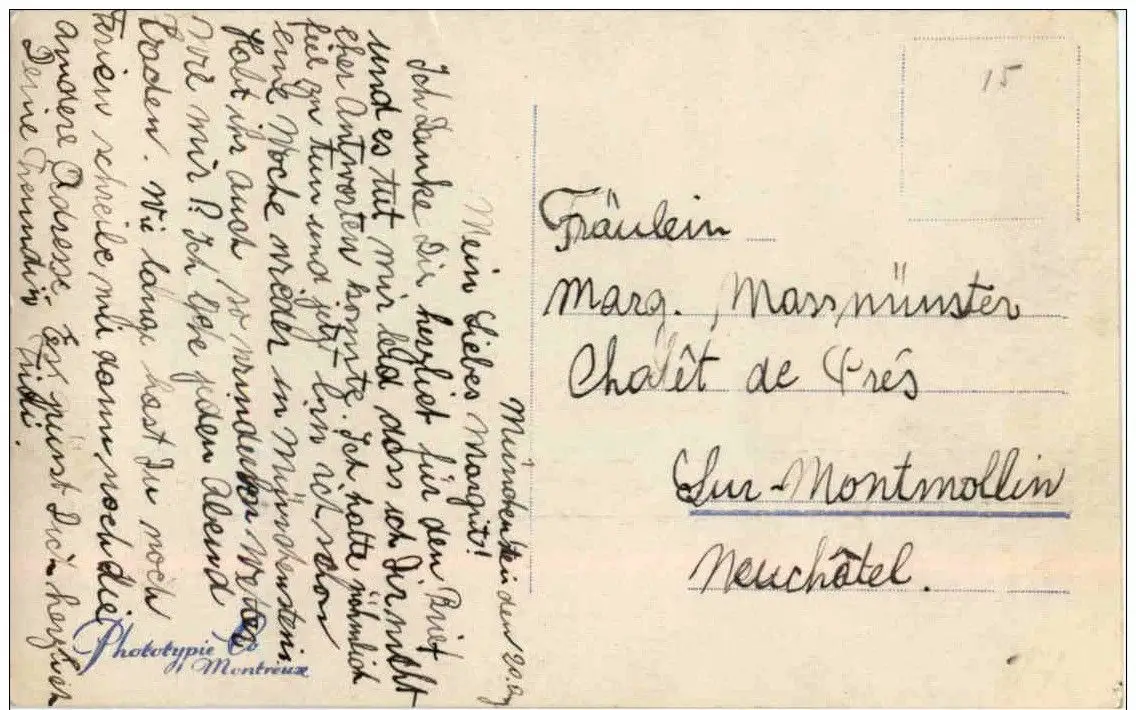 Münchenstein den 20. Aug
Mein Liebes Margit!
Ich Danke Dir herzlich für den Brief
und es tut mir leid dass ich Dir nicht
eher Antworten konnte. Ich hatte nähmlich
fiel zu tun und jetzt binn ich schon
eine Woche wieder in Münchenstein
Habt ihr auch so wunder Weter
wie mir? Ich gehe jeden Abend
Baden. Wie lang hast Du noch
Ferien schreibe mir dann noch die
andere Adresse. Es grüsst Dich herzlich
Deine Freundin Trudi.
Fräulein
Marg. Massmünster
Chalêt de Prés
Sur-Montmollin
Neuchâtel.
15
Phototypie Co
Montreux